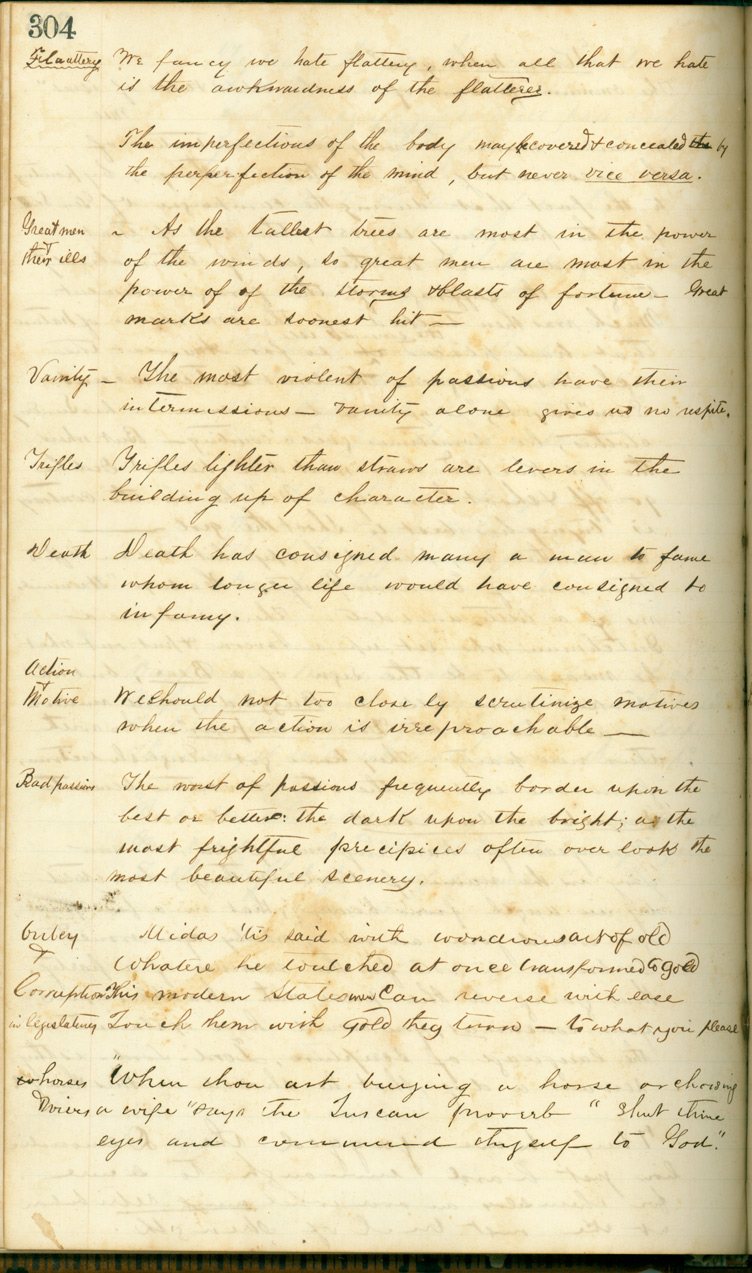 304
Flaattery We fancy we hate flattery, when all that we hate
is the awkwardness of the flatterer.
The imperfections of the body may be covered & concealed the by
the perperfection of the mind, but never vice versa.
Great men ~ As the tallest trees are most in the power
& their ills of the winds, so great men are most in the
power of of the storms & blasts of fortune – Great
marks are soonest hit —
Vanity – The most violent of passions have their
intermissions – vanity alone gives us no respite.
Trifles Trifles lighter than straws are levers in the
building up of character.
Death Death has consigned many a man to fame
whom longer life would have consigned to
infamy.
Action
& Motive We should not too closely scrutinize motives
when the action is irreproachable —
Bad passions The worst of passions frequently border upon the
best or better: the dark upon the bright; as the
most frightful precipices often over look the
most beautiful scenery.
Midas 'tis said with wondrous art of old
& Whatere he touched at once transformed to gold
Corruption This modern Statesmen Can reverse with ease
in legislatures Touch them with gold they turn – to what you please
horses "When thou art buying a horse or choosing
& Wives a wife" says the Tuscan proverb "shut thine
eyes and commend thyself to God".